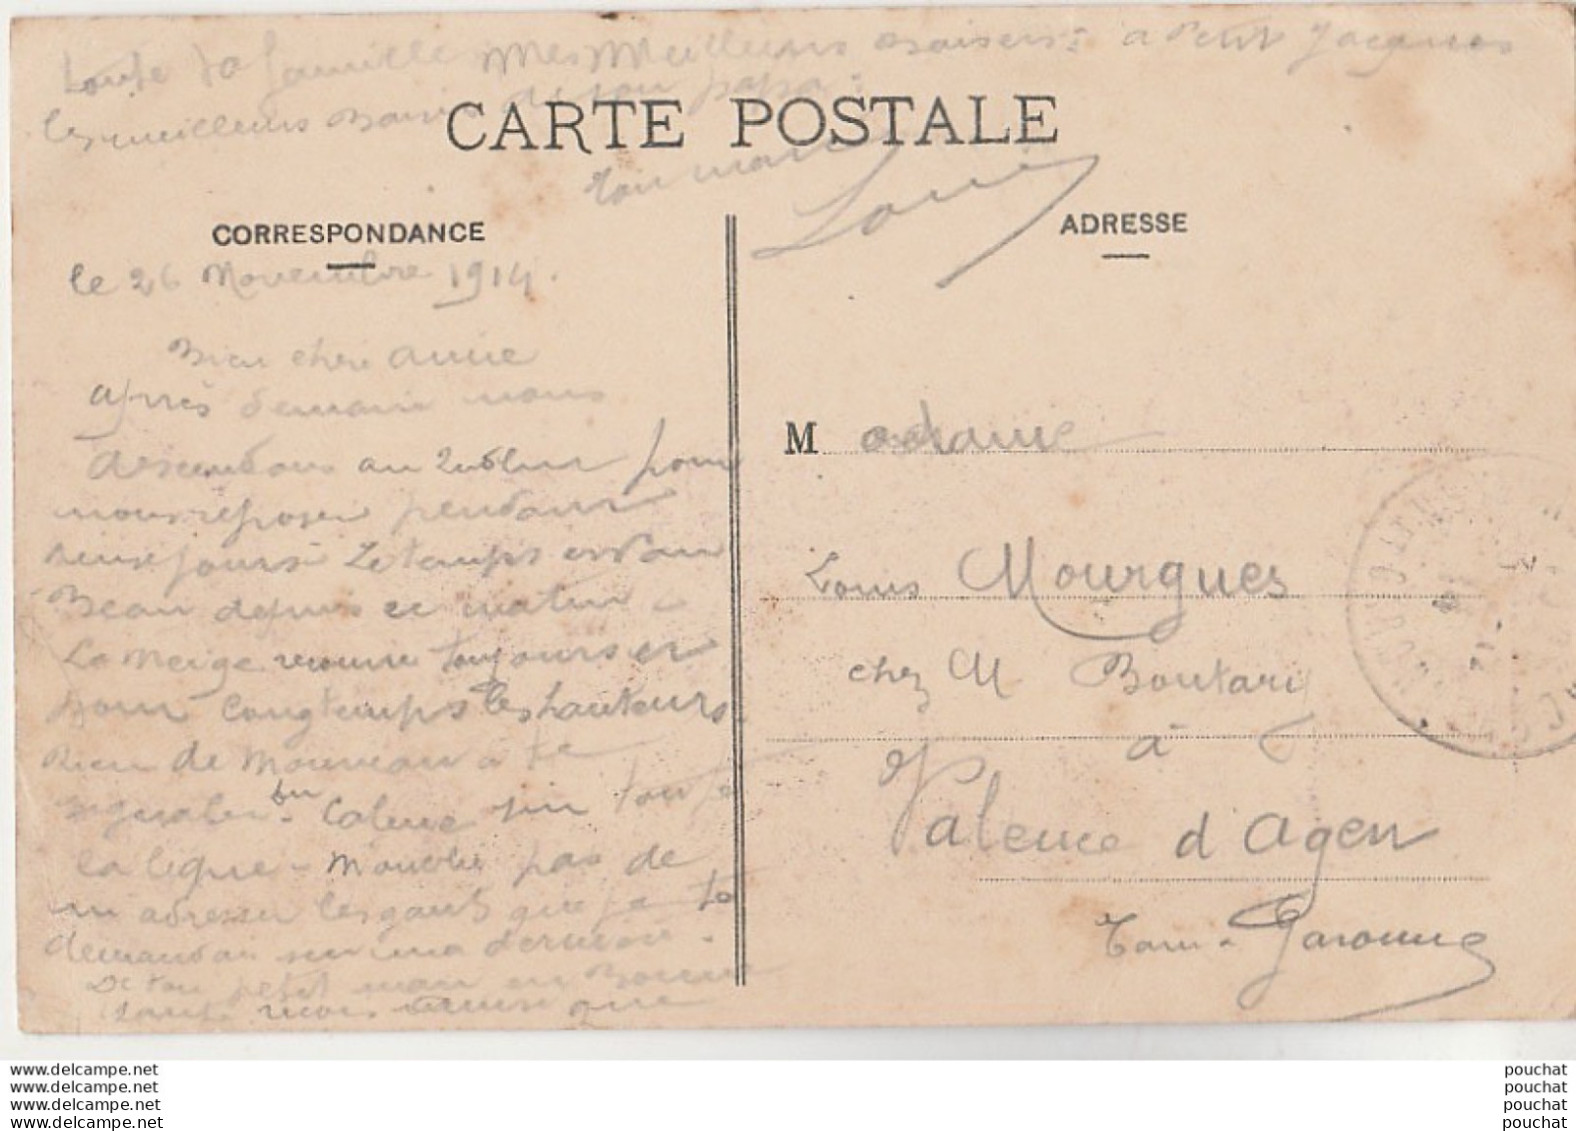 toute la famille Mes Meilleurs Baisers à Petit Jacques
les meilleurs Baisers de son papa
CARTE POSTALE
ton mari
Louis
CORRESPONDANCE
ADRESSE
le 26 Novembre 1914.
Bien chère amie
après demain nous
descendons au pour
nous reposer pendant
jours Le temps est
Beau depuis ce matin
La neige toujours et
pour longtemps les hauteurs.
Rien de Nouveau à te
signaler Calme sur toute
la ligne - pas de
m adresser les gants que je te
demandais sur ma dernière.
De ton petit mari en Bonne
santé mois que
Madame
Louis Mourgues
chez M Boutary
à
Valence d'Agen
Tarn & Garonne
www.delcampe.net
www.delcampe.net
www.delcampe.net
www.delcampe.net
pouchat
pouchat
pouchat
pouchat